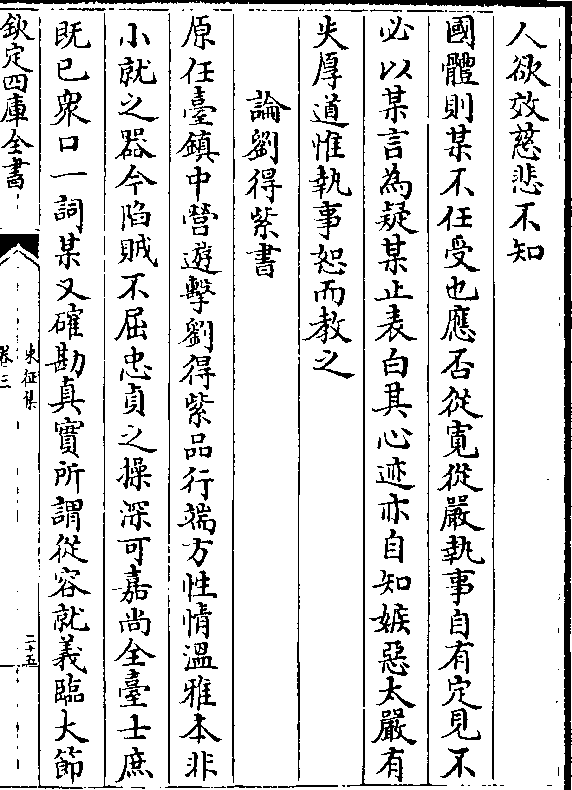 人欲效慈悲不知
國體則某不任受也應否從寛從嚴執事自有定見不
必以某言為疑某止表白其心迹亦自知嫉惡太嚴有
失厚道惟執事恕而教之
論劉得紫書
原任臺鎮中營遊擊劉得紫品行端方性情溫雅本非
小就之器今陷賊不屈忠貞之操深可嘉尚全臺士庶
既已衆口一詞某又確勘真實所謂從容就義臨大節
欽定四庫全書
東征集
卷三
二十五